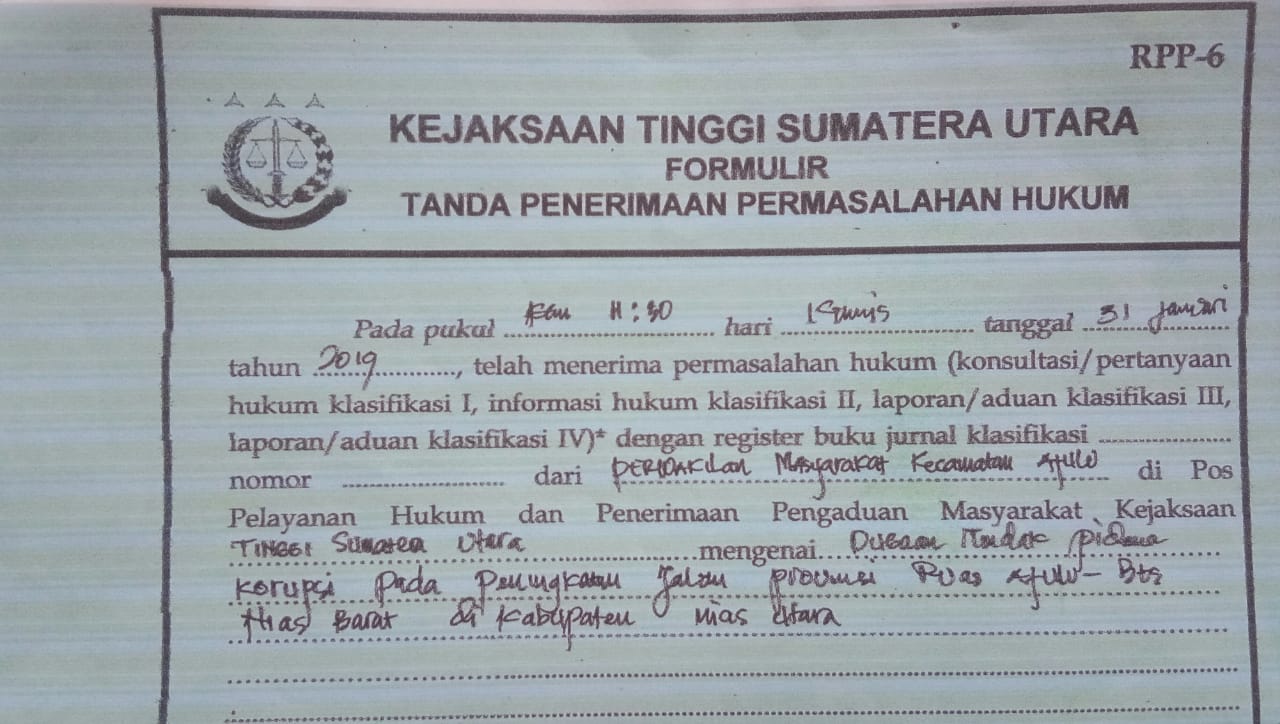 RPP-6
KEJAKSAAN TINGGI SUMATERA UTARA
FORMULIR
TANDA PENERIMAAN PERMASALAHAN HUKUM
Pada pukul 11:30 hari Kamis tanggal 31 Januari
tahun 2019, telah menerima permasalahan hukum (konsultasi/pertanyaan
hukum klasifikasi I, informasi hukum klasifikasi II, laporan/aduan klasifikasi III,
laporan/aduan klasifikasi IV)* dengan register buku jurnal klasifikasi
nomor dari Perwakilan Masyarakat Kecamatan Afulu di Pos
Pelayanan Hukum dan Penerimaan Pengaduan Masyarakat Kejaksaan
TINGGI Sumatea Utara mengenai Dugaan Tindak pidana
Korupsi Pada Peningkatan Jalan provinsi Ruas Afulu-Bts
Nias Barat di Kabupaten Nias Utara